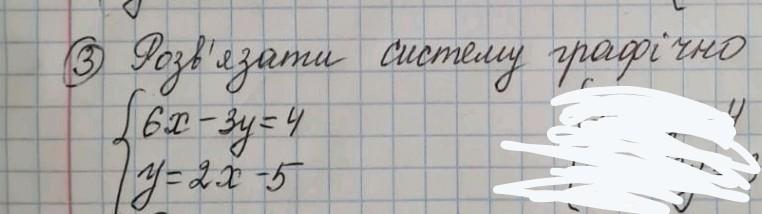 ③ Розв'язати систему графічно
6x - 3y = 4
y = 2x - 5